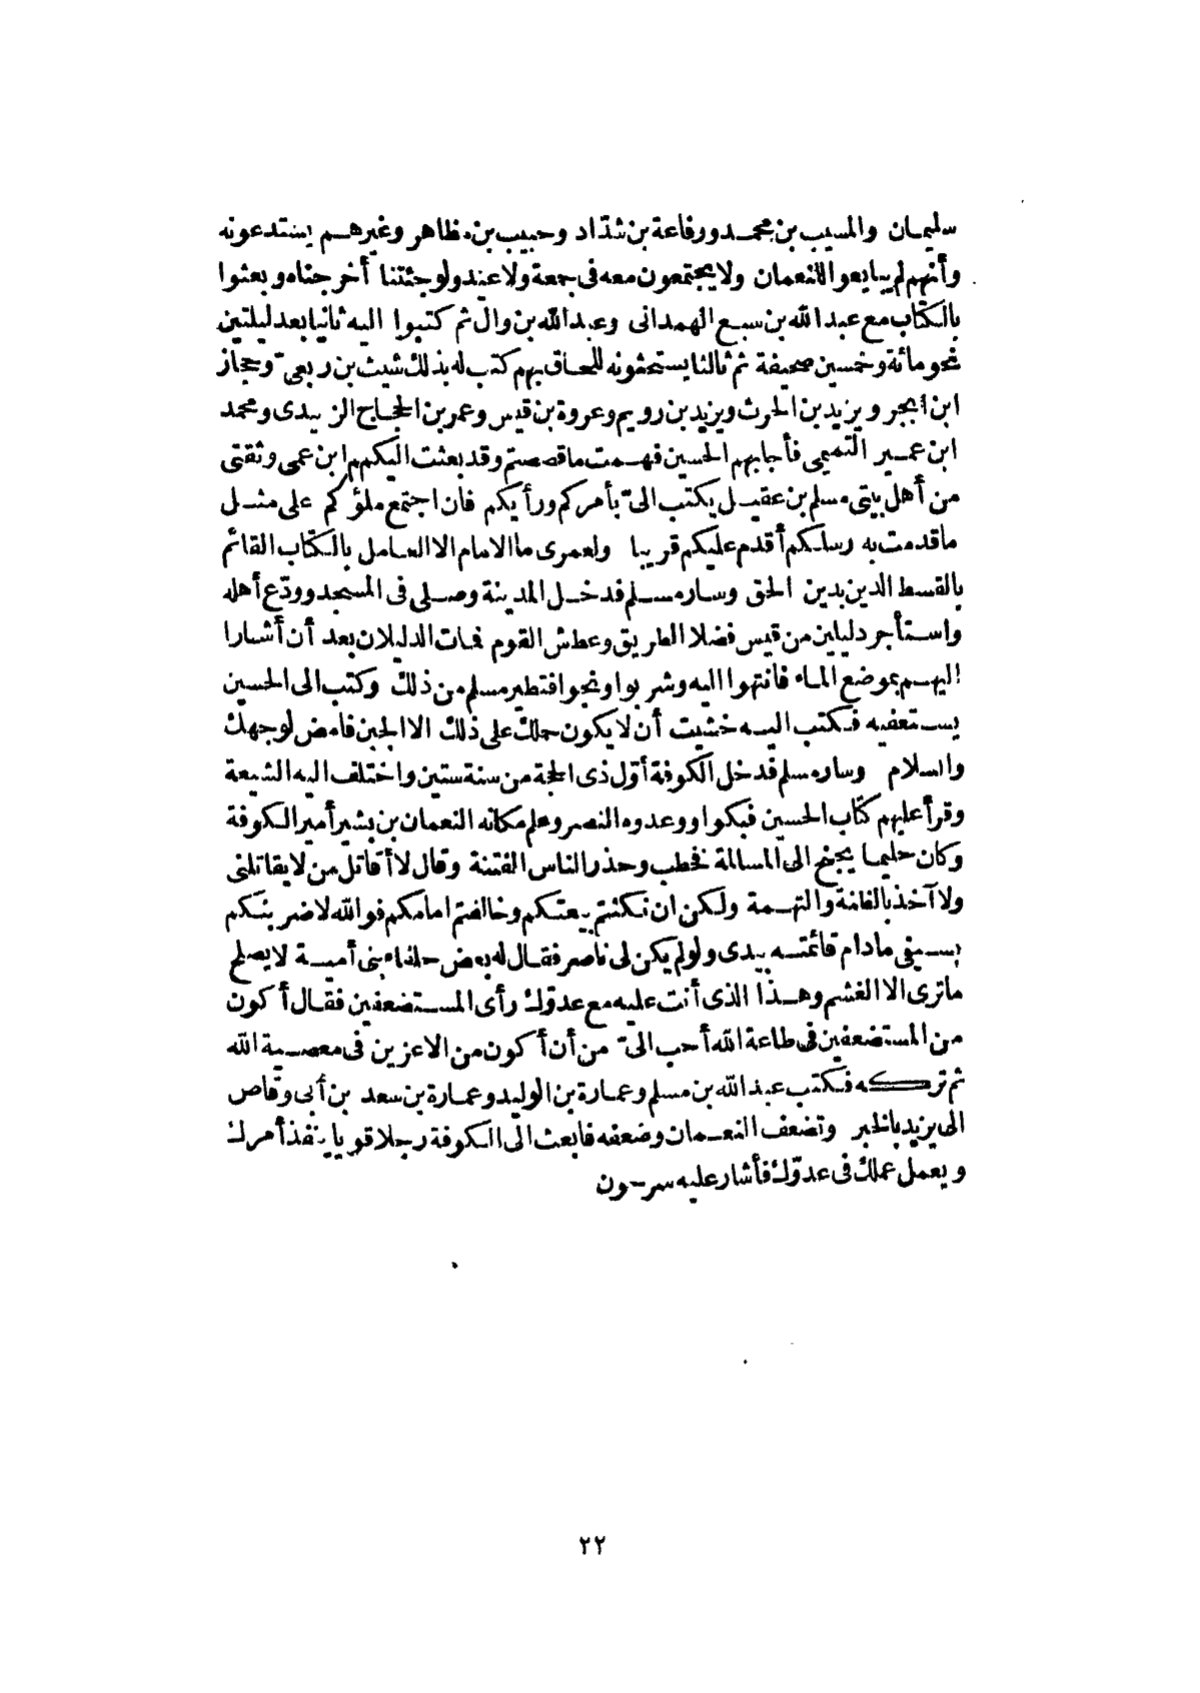 سليمان والمسيب بن محمد ورفاعة بن شدّاد وحبيب بن مظاهر وغيرهم يستدعونه
وأنهم لم يبايعوا للنعمان ولا يجتمعون معه فى جمعة ولا عيد ولو جئتنا أخرجناه وبعثوا
بالكتاب مع عبد الله بن سبع الهمدانى وعبد الله بن وال ثم كتبوا اليه ثانيا بعد ليلتين
نحو مائة وخمسين صحيفة ثم ثالثا يستحثونه للحاق بهم كتب له بذلك شيث بن ربعىّ وحجاز
ابن ابجر ويزيد بن الحرث ويزيد بن رويم وعروة بن قيس وعمر بن الحجاج الزبيدى ومحمد
ابن عمير التميمى فأجابهم الحسين فهمت ما قصصتم وقد بعثت اليكم ابن عمى وثقتى
من أهل بيتى مسلم بن عقيل يكتب الىّ بأمركم ورأيكم فان اجتمع ملؤكم على مثل
ما قدمت به رسلكم أقدم عليكم قريبا ولعمرى ما الامام الا العامل بالكتاب القائم
بالقسط الدين بدين الحق وسار مسلم فدخل المدينة وصلى فى المسجد وودّع أهله
واستأجر دليلين من قيس فضلا الطريق وعطش القوم فمات الدليلان بعد أن أشارا
اليهم بموضع الماء فانتهوا اليه وشربوا ونجوا فتطير مسلم من ذلك وكتب الى الحسين
يستعفيه فكتب اليه خشيت أن لا يكون حملك على ذلك الا الجبن فامض لوجهك
والسلام وسار مسلم فدخل الكوفة أوّل ذى الحجة من سنة ستين واختلف اليه الشيعة
وقرأ عليهم كتاب الحسين فبكوا ووعدوه النصر وعلم مكانه النعمان بن بشير أمير الكوفة
وكان حليما يجنح الى المسالمة فخطب وحذر الناس الفتنة وقال لا أقاتل من لا يقاتلنى
ولا آخذ بالظنة والتهمة ولكن ان نكثتم بيعتكم وخالفتم امامكم فوالله لاضربنكم
بسيفى مادام قائمته بيدى ولو لم يكن لى ناصر فقال له بعض حلفاء بنى أمية لا يصلح
ما ترى الا الغشم وهذا الذى أنت عليه مع عدوّك رأى المستضعفين فقال أكون
من المستضعفين فى طاعة الله أحب الىّ من أن أكون من الاعزين فى معصية الله
ثم تركه فكتب عبد الله بن مسلم وعمارة بن الوليد وعمارة بن سعد بن أبى وقاص
الى يزيد بالخبر وتضعف النعمان وضعفه فابعث الى الكوفة رجلا قويا ينفذ أمرك
ويعمل عملك فى عدوّك فأشار عليه سرحون
٢٢